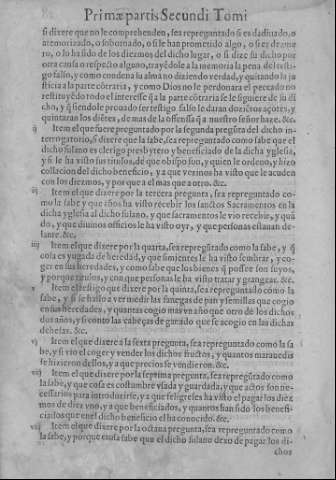 Primæ partis Secundi Tomi
si dixere que no le comprehenden, sea repreguntado si es dadinado, o
atemorizado, o sobornado, o si le han prometido algo, o si es de ame
ro, o lo ha sido de los diezmos del dicho lugar, o si dize su dicho por
otra causa o respecto alguno, trayēdole a la memoria la pena del testi
go falso, y como condena su alma no diziendo verdad, y quitando la ju
sticia a la parte cōtraria, y como Dios no le perdonara el peccado no
restituyēdo todo el interesse q̄ a la parte cōtraria se le siguiere de su di
cho, y q̄ siendole prouado ser testigo falso le daran dozientos açotes, y
quintaran los diētes, de mas de la offensa q̄ a nuestro señor haze. &c.
ij Item el que fuere preguntado por la segunda pregūta del dicho in-
terrogatorio, si dixere que la sabe, sea repreguntado como sabe que el
dicho fulano es clerigo presbytero y beneficiado de la dicha yglesia,
y si le ha visto sus titulos, de que obispo son, y quien le ordeno, y hizo
collacion del dicho beneficio, y a que vezinos ha visto que le acuden
con los diezmos, y por que a el mas que a otro. &c.
iij Item el que dixere por la tercera pregunta, sea repreguntado co-
mo la sabe y que años ha visto recebir los sanctos Sacramentos en la
dicha yglesia al dicho fulano, y que sacramentos le vio recebir, y quā
do, y que diuinos officios le ha visto oyr, y que personas estauan de-
lante. &c.
iiij Item el que dixere por la quarta, sea repregūtado como la sabe, y q̄
cosa es yugada de heredad, y que simientes le ha visto sembrar, y co-
ger en sus heredades, y como sabe que los bienes q̄ possee son suyos,
y por que titulos, y con que personas le ha visto tratar y grangear. &c.
v Item el testigo que dixere por la quinta, sea repregūtado como la
sabe, y si se hallo a ver medir las fanegas de pan y semillas que cogio
en sus heredades, y quantas cogio mas vn año que otro de los dichos
dos años, y si conto las cabeças de ganado que se acogio en las dichas
dehesas. &c.
vj Item el que dixere a la sexta pregunta, sea repreguntado como la sa
be, y si vio el coger y vender los dichos fructos, y quantos marauedis
se hizieron dellos, y a que precios se vendieron. &c.
vij Item el que dixere por la septima pregunta, sea repregūtado como
la sabe, y que cosa es costumbre vsada y guardada, y que actos son ne-
cessarios para introduzirse, y a que feligreses ha visto el pagar los diez
mos de diez vno, y a que beneficiados, y quantos han sido los benefi-
ciados que en el dicho beneficio el ha conocido. &c.
viij Item el que dixere por la octaua pregunta, sea repreguntado como
la sabe, y porque causa sabe que el dicho fulano dexo de pagar los di-
chos